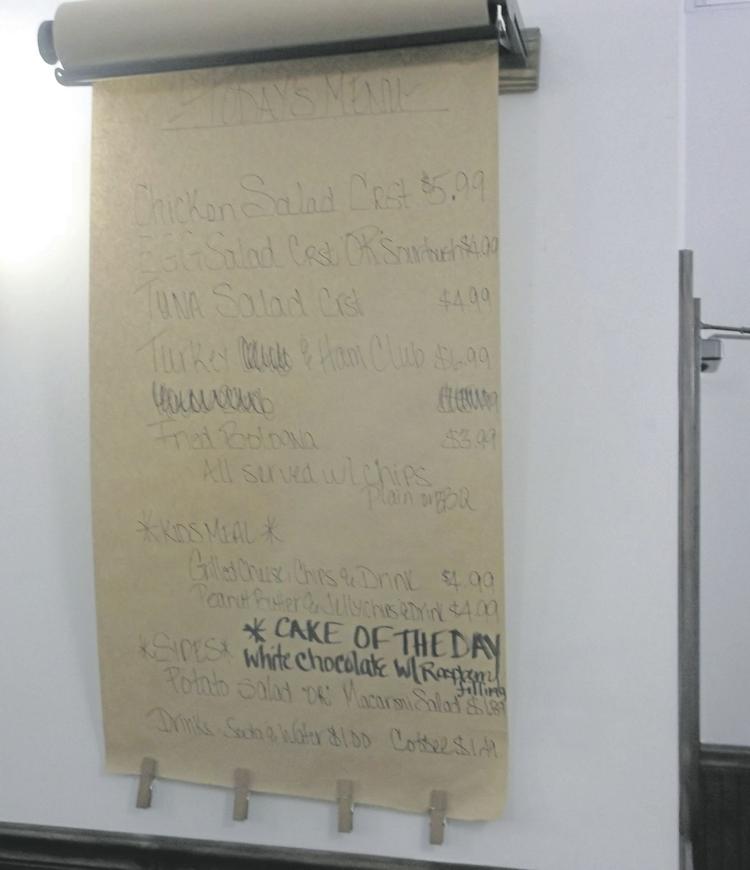 TODAY'S MENU
Chicken Salad Crst $5.99
EGG Salad Crst OR Sourdough $4.99
TUNA Salad Crst $4.99
Turkey & Ham Club $6.99
Fried Bologna $3.99
All served w/ chips
Plain or BBQ
*KIDS MEAL*
Grilled Cheese, Chips & Drink $4.99
Peanut Butter & Jelly chips & Drink $4.99
* CAKE OF THE DAY
*SIDES* White chocolate w/ Raspberry
filling
Potato Salad OR Macaroni Salad
Drinks Soda & Water $1.00 Coffee $1.49